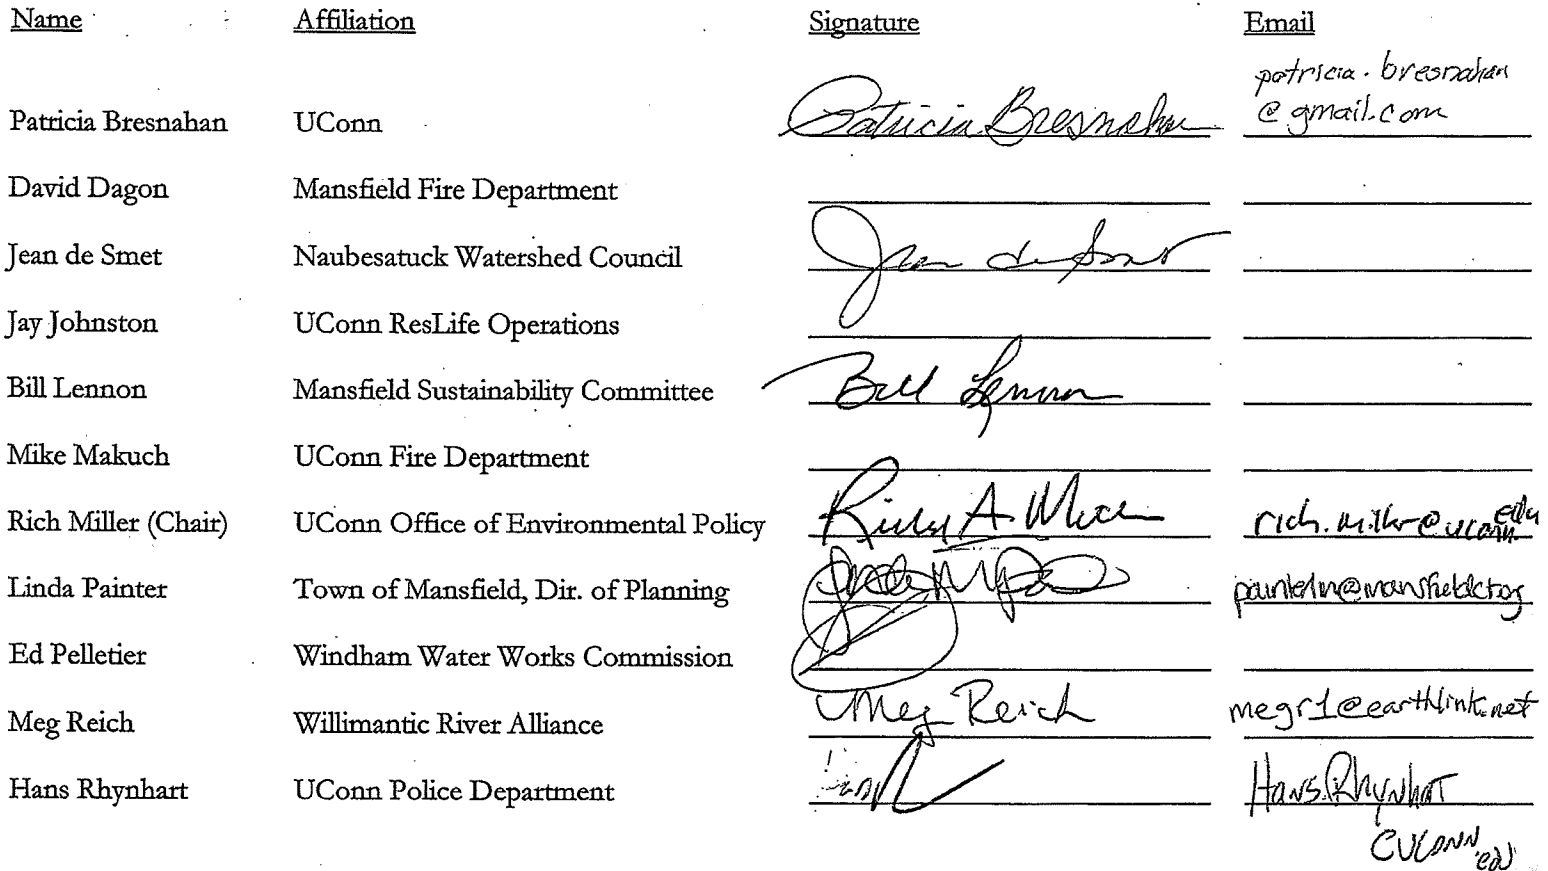 Name Affiliation Signature Email
patricia.bresnahan
Patricia Bresnahan UConn Patricia Bresnahan @gmail.com
David Dagon Mansfield Fire Department
Jean de Smet Naubesatuck Watershed Council Jean de Smet
Jay Johnston UConn ResLife Operations
Bill Lennon Mansfield Sustainability Committee Bill Lennon
Mike Makuch UConn Fire Department
Rich Miller (Chair) UConn Office of Environmental Policy rich.miller@uconn.edu
Linda Painter Town of Mansfield, Dir. of Planning
Ed Pelletier Windham Water Works Commission
Meg Reich Willimantic River Alliance Meg Reich megr1@earthlink.net
Hans Rhynhart UConn Police Department Hans.Rhynhart
@UCONN.edu